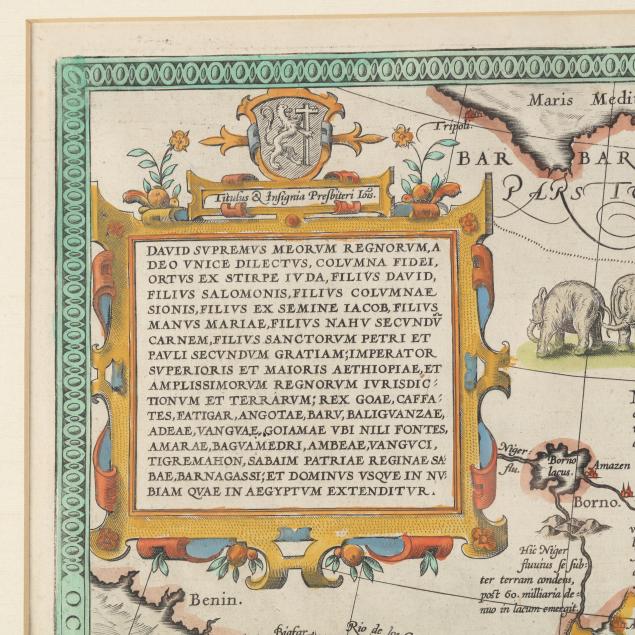 Titulus & Insignia Presbiteri Iois.
DAVID SVPREMVS MEORVM REGNORVM, A
DEO VNICE DILECTVS, COLVMNA FIDEI,
ORTVS EX STIRPE IVDA, FILIVS DAVID,
FILIVS SALOMONIS, FILIVS COLVMNAE
SIONIS, FILIVS EX SEMINE IACOB, FILIVS
MANVS MARIAE, FILIVS NAHV SECVNDV̄
CARNEM, FILIVS SANCTORVM PETRI ET
PAVLI SECVNDVM GRATIAM; IMPERATOR
SVPERIORIS ET MAIORIS AETHIOPIAE, ET
AMPLISSIMORVM REGNORVM IVRISDIC:
TIONVM ET TERRARVM; REX GOAE, CAFFA:
TES, FATIGAR, ANGOTAE, BARV, BALIGVANZAE,
ADEAE, VANGVAE, GOIAMAE VBI NILI FONTES,
AMARAE, BAGVAMEDRI, AMBEAE, VANGVCI,
TIGREMAHON, SABAIM PATRIAE REGINAE SA:
BAE, BARNAGASSI; ET DOMINVS VSQVE IN NV:
BIAM QVAE IN AEGYPTVM EXTENDITVR.
Maris Medi
Tripoli
BAR BAR
PARS
Niger
flu.
Borno
lacus.
Amazen
Borno.
Hic Niger
fluuius se sub:
ter terram condens,
post 60. milliaria de:
nuo in lacum emergit.
Benin.
Biafar
Rio de los
OC